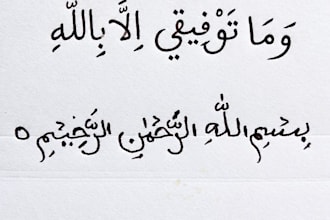 وَمَا تَوْفِيقِي اِلَّا بِاللَّهِ
بِسْمِ اللَّهِ الرَّحْمٰنِ الرَّحِيْمِ ه